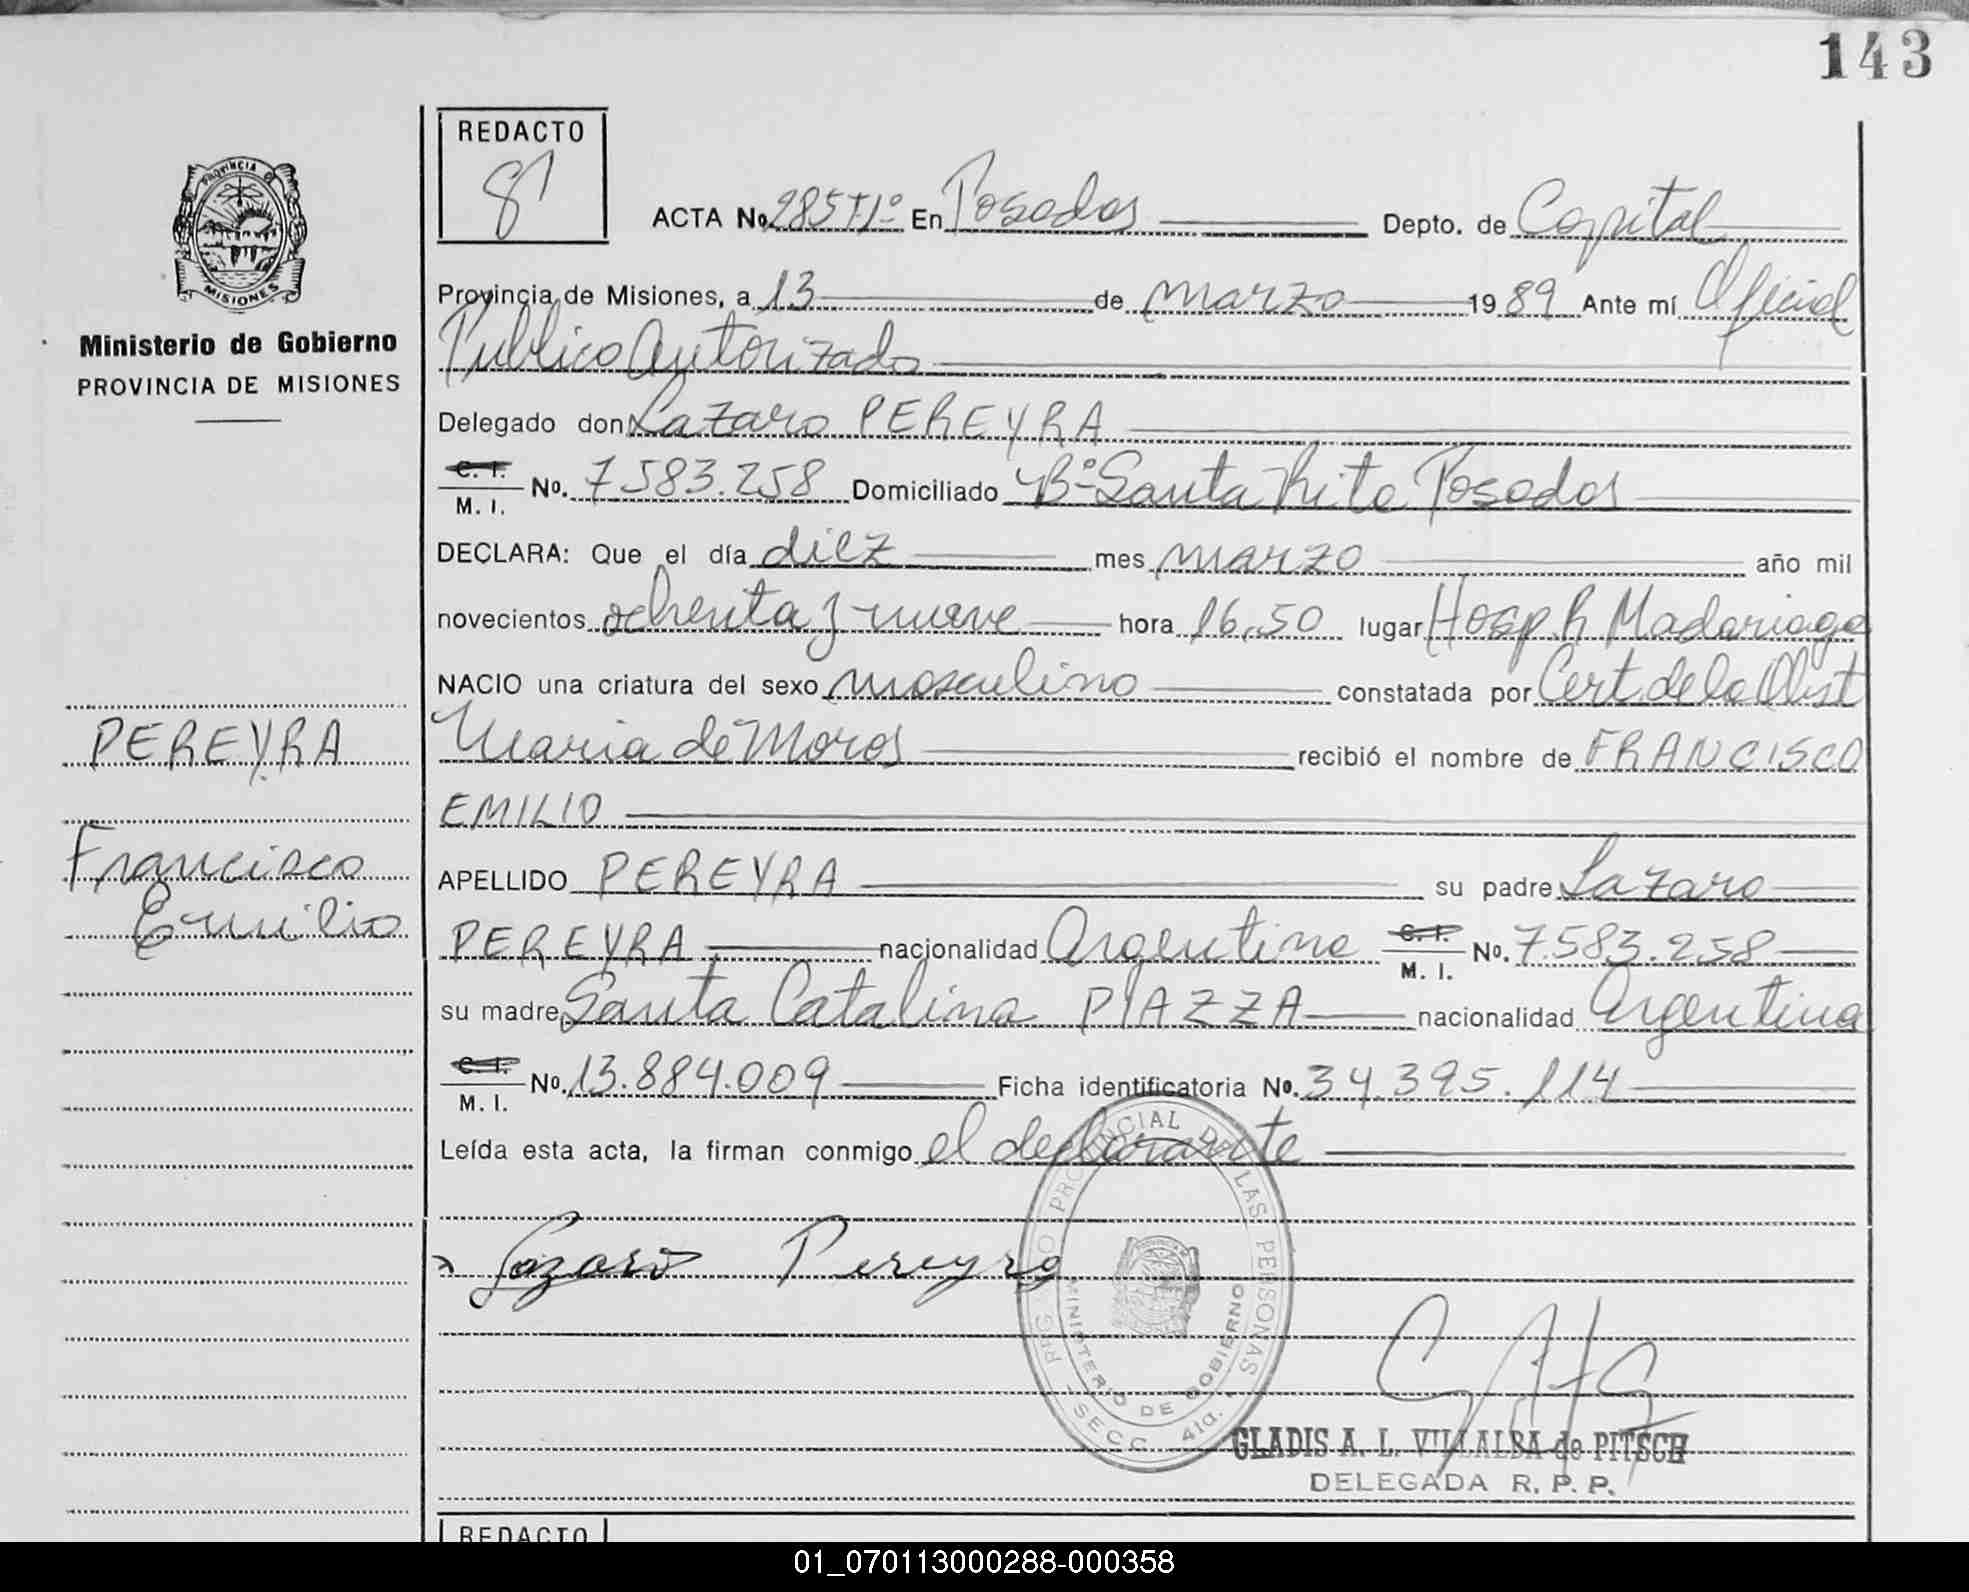 143
REDACTO
PROVINCIA DE
MISIONES
ACTA No. 285 T1º En Posadas Depto. de Capital
Provincia de Misiones, a 13 de marzo 1989 Ante mí Oficial
Publico Autorizado
Ministerio de Gobierno
PROVINCIA DE MISIONES
Delegado don Lazaro PEREYRA
C. I. M. I. No. 7583.258 Domiciliado Bº Santa Rita Posadas
DECLARA: Que el día diez mes marzo año mil
novecientos ochenta y nueve hora 16,50 lugar Hosp. R Madariaga
NACIO una criatura del sexo masculino constatada por Cert. de la Obst
Maria de Moros recibió el nombre de FRANCISCO
EMILIO
PEREYRA
Francisco
Emilio
APELLIDO PEREYRA su padre Lazaro
PEREYRA nacionalidad Argentina C. I. M. I. No. 7.583.258
su madre Santa Catalina PIAZZA nacionalidad Argentina
C. I. M. I. No. 13.884.009 Ficha identificatoria No. 34.395.114
Leída esta acta, la firman conmigo el declarante
Lazaro Pereyra
PROVINCIAL DE LAS PERSONAS
MINISTERIO DE GOBIERNO
SECC. 4ta.
GLADIS A. L. VILLALBA de PITSCH
DELEGADA R. P. P.
REDACTO
01_070113000288-000358